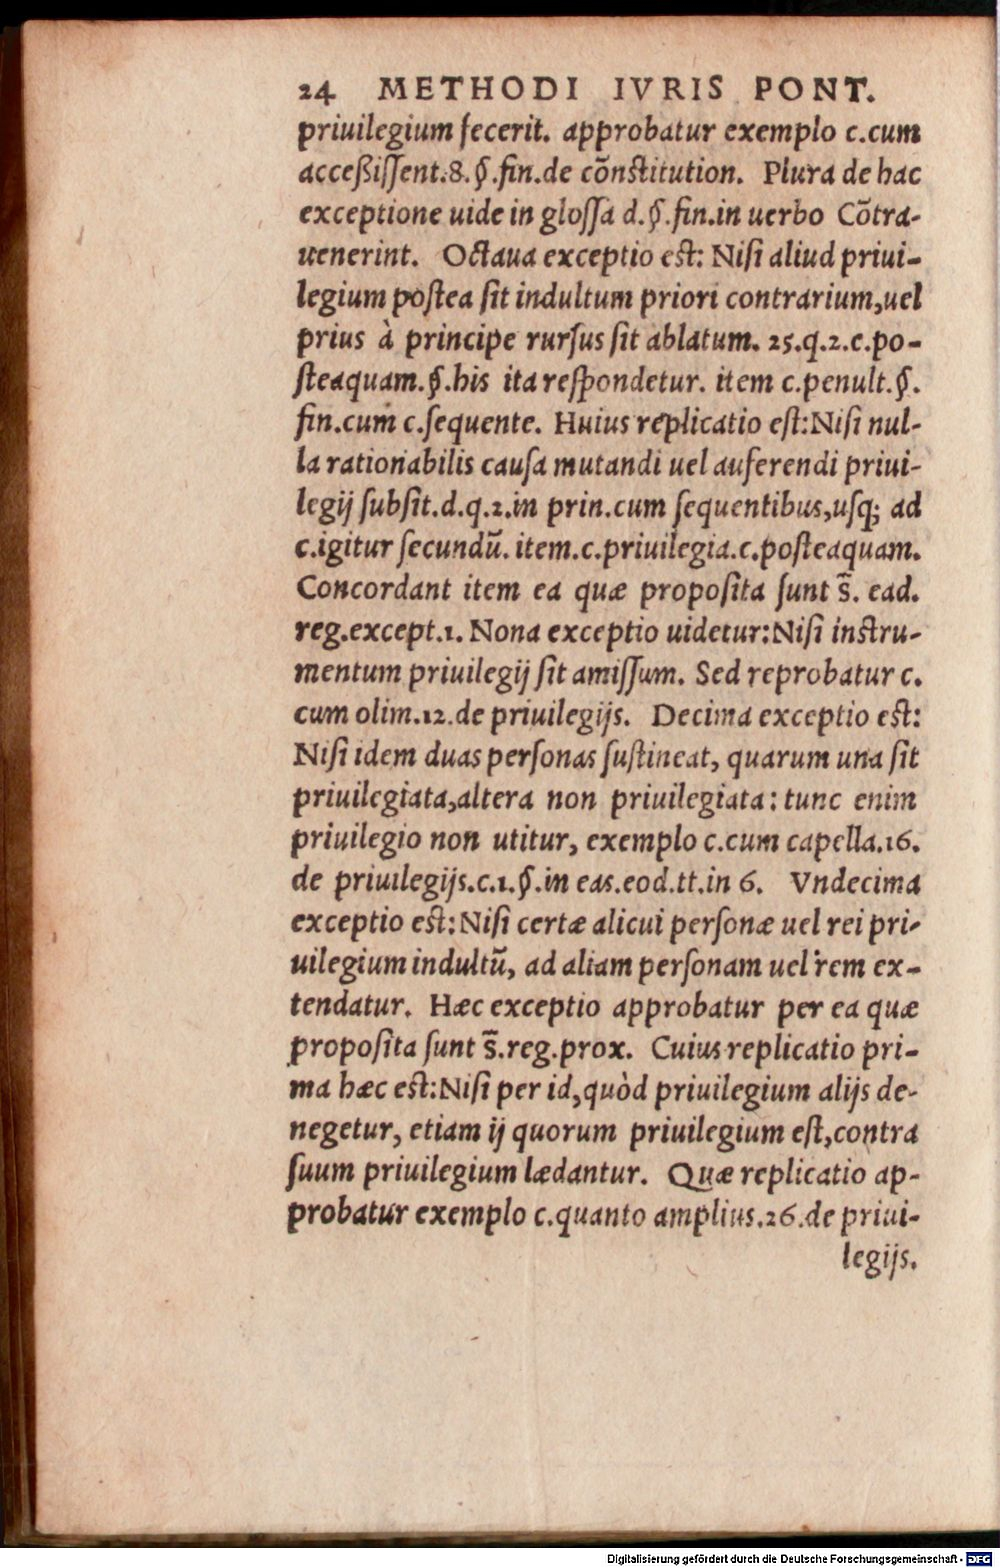 24 METHODI IVRIS PONT.
priuilegium fecerit. approbatur exemplo c.cum
acceßiſſent.8.§.fin.de cõnstitution. Plura de hac
exceptione uide in gloſſa d.§.fin.in uerbo Cõtra-
uenerint. Octaua exceptio est: Niſi aliud priui-
legium poſtea ſit indultum priori contrarium,uel
prius à principe rurſus ſit ablatum. 25.q.2.c.po-
ſteaquam.§.his ita reſpondetur. item c.penult.§.
fin.cum c.ſequente. Huius replicatio eſt:Niſi nul-
la rationabilis cauſa mutandi uel auferendi priui-
legij ſubſit.d.q.2.in prin.cum ſequentibus,uſq; ad
c.igitur ſecundũ. item.c.priuilegia.c.poſteaquam.
Concordant item ea quæ propoſita ſunt s̃. ead.
reg.except.1. Nona exceptio uidetur:Niſi instru-
mentum priuilegij ſit amiſſum. Sed reprobatur c.
cum olim.12.de priuilegijs. Decima exceptio est:
Niſi idem duas perſonas ſuſtineat, quarum una ſit
priuilegiata,altera non priuilegiata: tunc enim
priuilegio non utitur, exemplo c.cum capella.16.
de priuilegijs.c.1.§.in eas.eod.tt.in 6. Vndecima
exceptio est:Niſi certæ alicui perſonæ uel rei pri-
uilegium indultũ, ad aliam perſonam uel rem ex-
tendatur. Hæc exceptio approbatur per ea quæ
propoſita ſunt s̃.reg.prox. Cuius replicatio pri-
ma hæc est:Niſi per id,quòd priuilegium alijs de-
negetur, etiam ij quorum priuilegium eſt,contra
ſuum priuilegium lædantur. Quæ replicatio ap-
probatur exemplo c.quanto amplius.26.de priui-
legijs.
Digitalisierung gefördert durch die Deutsche Forschungsgemeinschaft - DFG